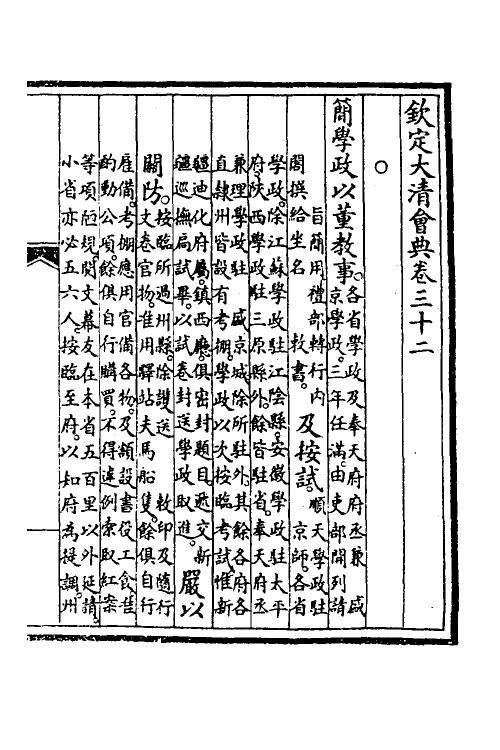 欽定大清會典卷三十二
○
簡學政以董教事。各省學政及奉天府府丞兼 盛
京學政。三年任滿。由吏部開列請
旨簡用。禮部轉行內
閣撰給坐名 敕書。
及按試。順天學政駐
京師。各省
學政。除江蘇學政駐江陰縣。安徽學政駐太平
府。陝西學政駐三原縣外。餘皆駐省。奉天府丞
兼理學政。駐 盛京城。除所駐外。其餘各府各
直隸州皆設有考棚。學政以次按臨考試。惟新
疆迪化府屬。鎮西廳。俱密封題目。遞交新
疆巡撫扃試畢。以試卷封送學政取進。
嚴以
關防。按臨所過州縣。除護送 敕印及隨行
文卷官物。准用驛站夫馬船隻。餘俱自行
雇備。考棚應用官備各物。及額設書役工食。准
酌動公項。餘俱自行購買。不得違例索取紅案
等項陋規。閱文幕友在本省五百里以外延請。
小省亦必五六人。按臨至府。以知府為提調。州